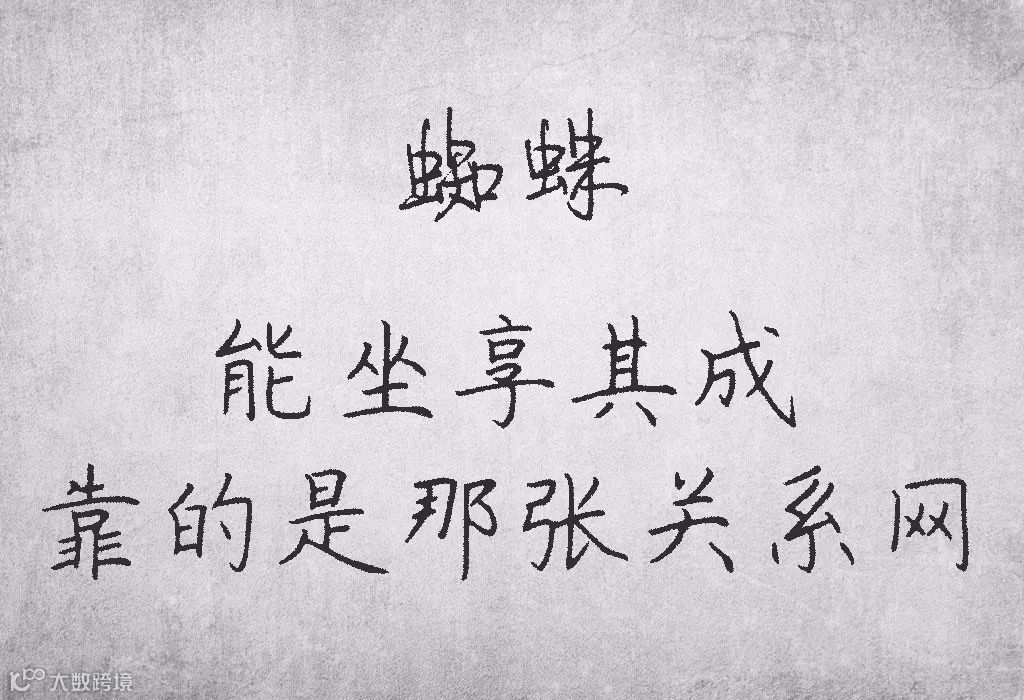 蜘蛛
能坐享其成
靠的是那张关系网
大数跨境